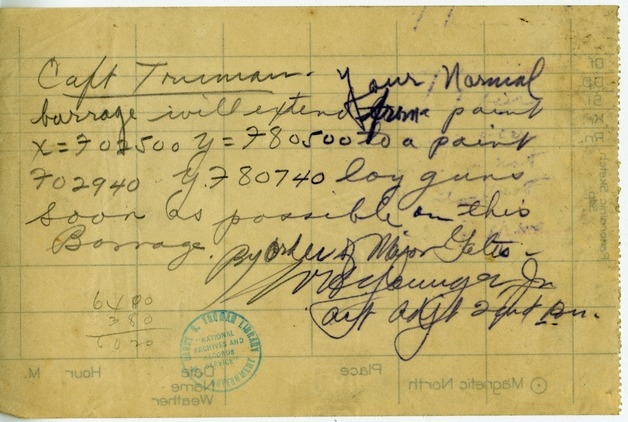 Capt Truman. Your Normal
barrage will extend from point
x=702500 y=780500 to a point
702940 Y.780740 lay guns
soon as possible on this
Barrage. By Order of Major Gates -
Younger Jr
Act Adjt 2nd Bn.
6400
380
6020
HARRY S. TRUMAN LIBRARY
NATIONAL
ARCHIVES AND
RECORDS
SERVICE
INDEPENDENCE
M. Hour Date Place Magnetic North
Name
Weather